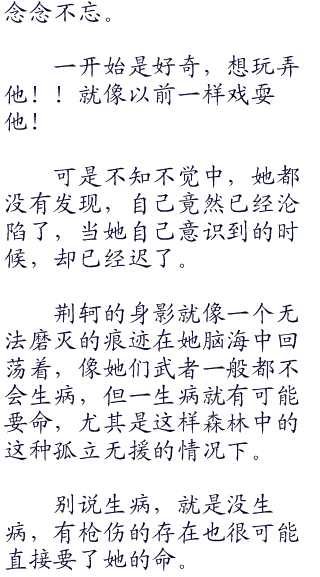 念念不忘。
一开始是好奇，想玩弄
他！！就像以前一样戏耍
他！
可是不知不觉中，她都
没有发现，自己竟然已经沦
陷了，当她自己意识到的时
候，却已经迟了。
荆轲的身影就像一个无
法磨灭的痕迹在她脑海中回
荡着，像她们武者一般都不
会生病，但一生病就有可能
要命，尤其是这样森林中的
这种孤立无援的情况下。
别说生病，就是没生
病，有枪伤的存在也很可能
直接要了她的命。